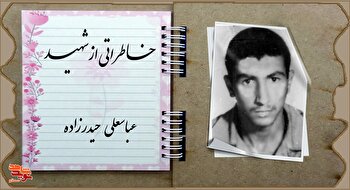 خاطراتی از شهید
عباسعلی حیدرزاده